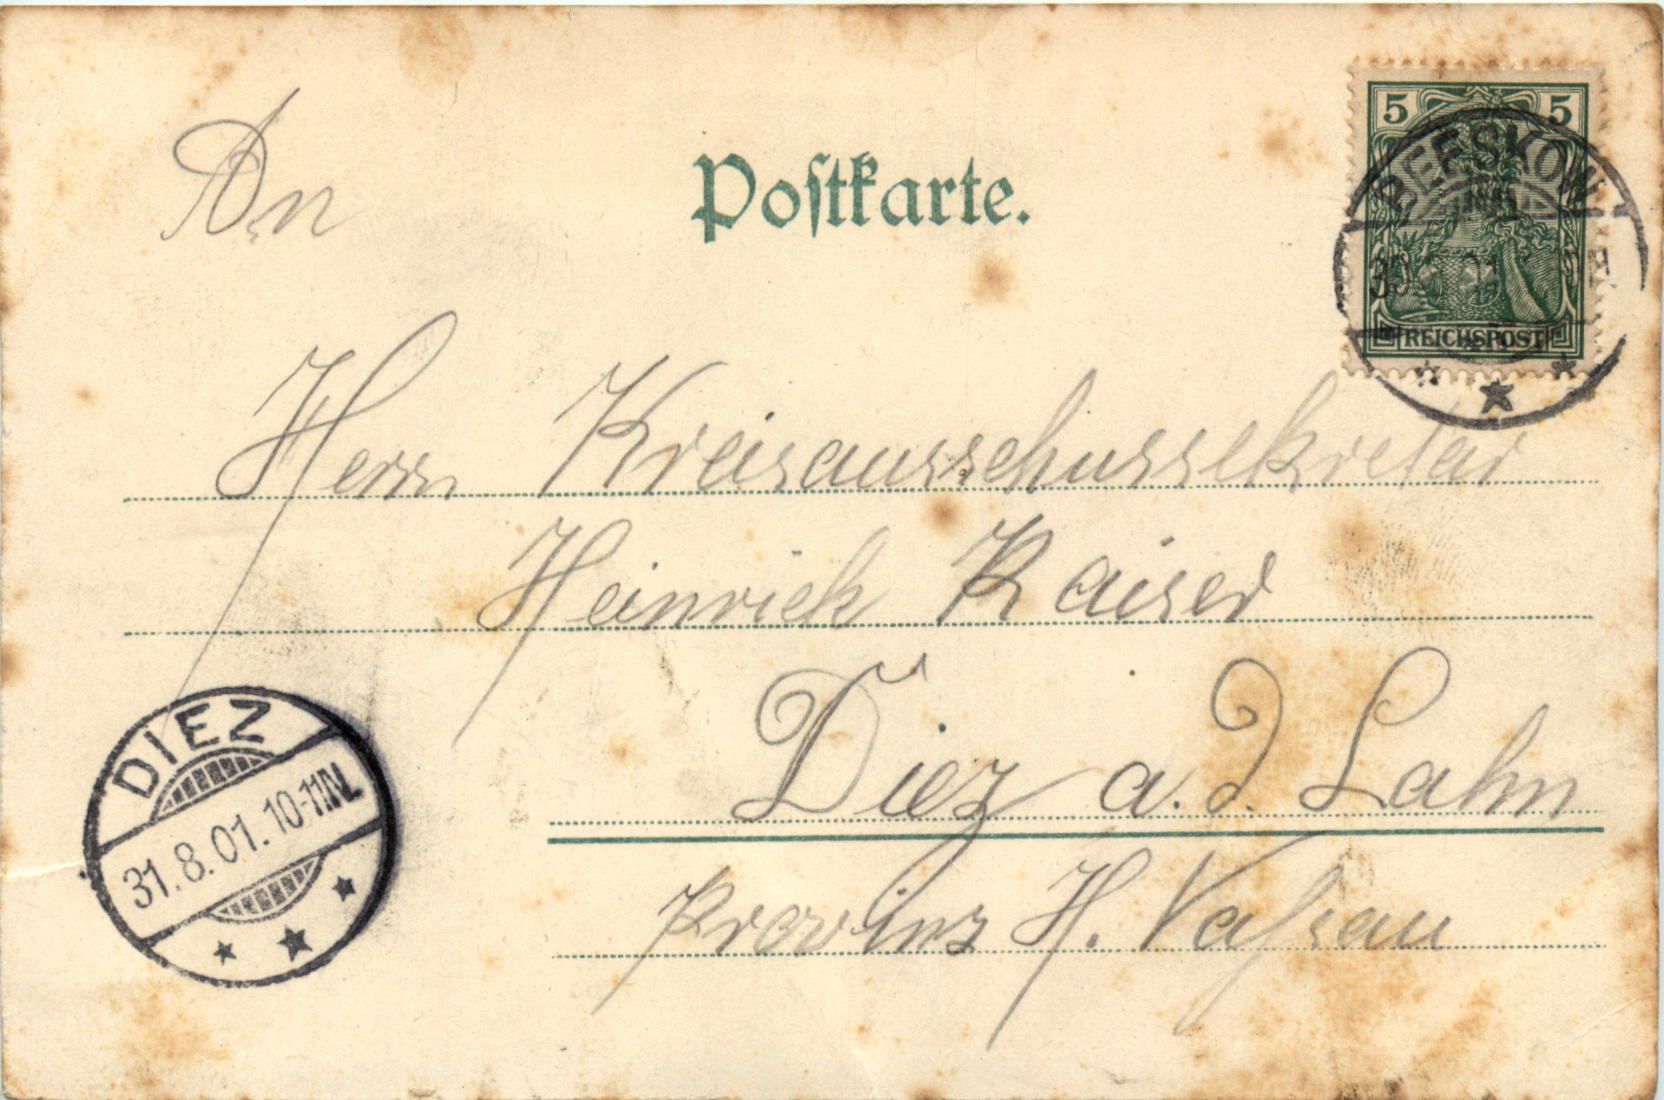 Postkarte.
An
5 5
BEESKOW
30.
REICHSPOST
Herrn Kreisausschusssekretär
Heinrich Kaiser
Diez a. d. Lahn
Provinz H. Nassau
DIEZ
31.8.01.10-11N.